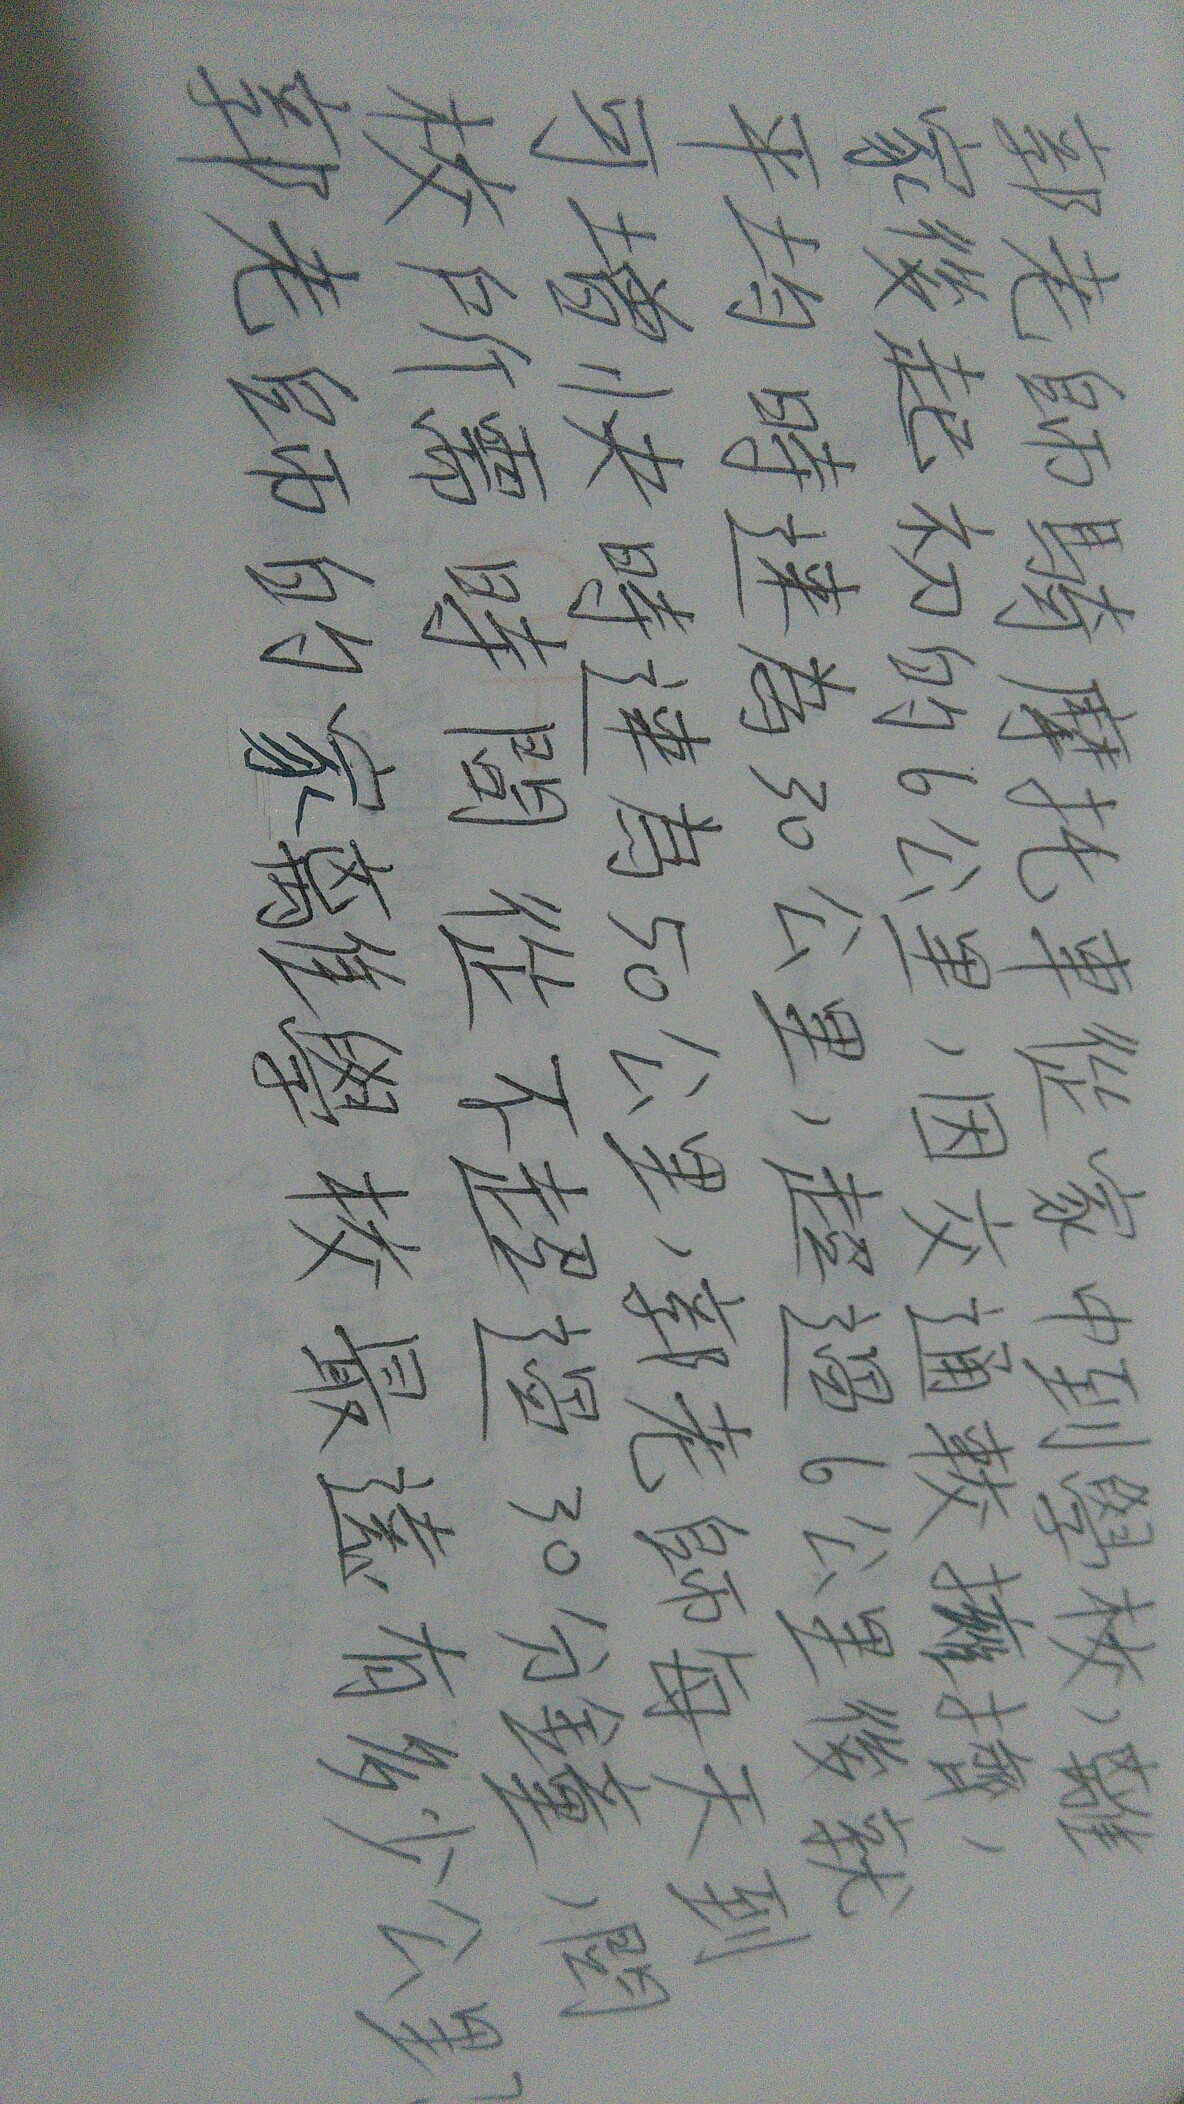 郭老師騎摩托車從家中到學校,離
家後起初的6公里,因交通較擁擠,
平均時速為30公里,超過6公里後就
可增快時速為50公里,郭老師每天到
校所需時間從不超過30分鐘,問
郭老師的家離學校最遠有多少公里?